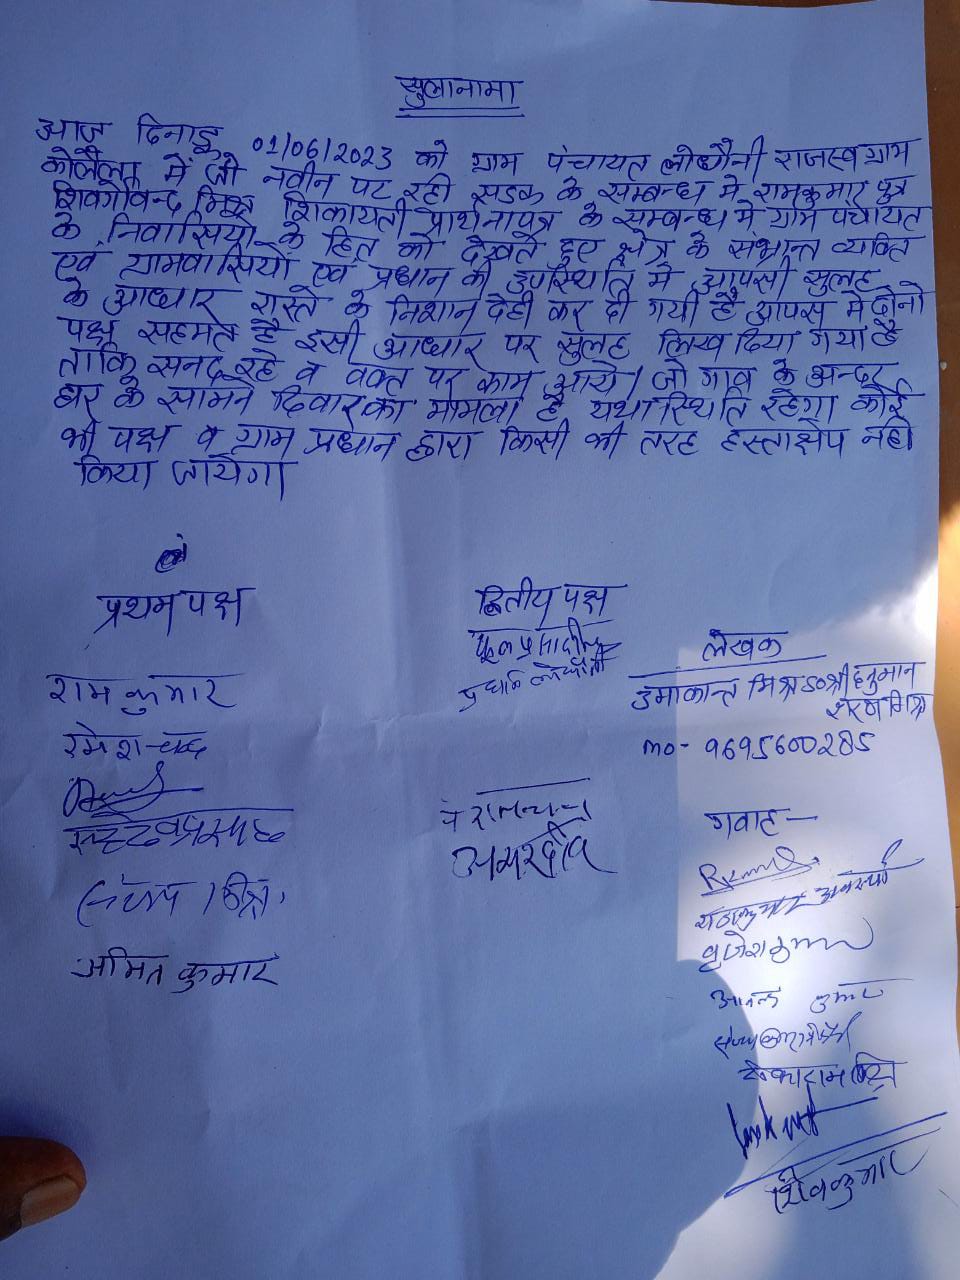 सुलानामा
आज दिनाङ्क 01/06/2023 को ग्राम पंचायत लोधौनी राजस्व ग्राम
में जो नवीन पट रही सडक के सम्बन्ध मे रामकुमार पुत्र
शिवगोविन्द मिश्र शिकायती प्रार्थनापत्र के सम्बन्ध मे ग्राम पंचायत
के निवासियो के हित को देखते हुए क्षेत्र के सभ्रान्त व्यक्ति
एवं ग्रामवासियों एवं प्रधान की उपस्थिति मे आपसी सुलह
के आधार रास्ते के निशान देही कर दी गयी है आपस मे दोनो
पक्ष सहमत है इसी आधार पर सुलह लिख दिया गया है
ताकि सनद रहे व वक्त पर काम आये। जो गाव के अन्दर
घर के सामने दिवार का मामला है यथा स्थिति रहेगा कोई
भी पक्ष व ग्राम प्रधान द्वारा किसी की तरह हस्ताक्षेप नही
किया जायेगा
प्रथम पक्ष
द्वितीय पक्ष
लेखक
उमाकान्त मिश्र S०श्री हनुमान
शरण मिश्र
mo- 9695600285
राम कुमार
रमेश चन्द्र
अमित कुमार
अमरदीप
गवाह—
बृजेश कुमार
आनन्द कुमार
शिवकुमार